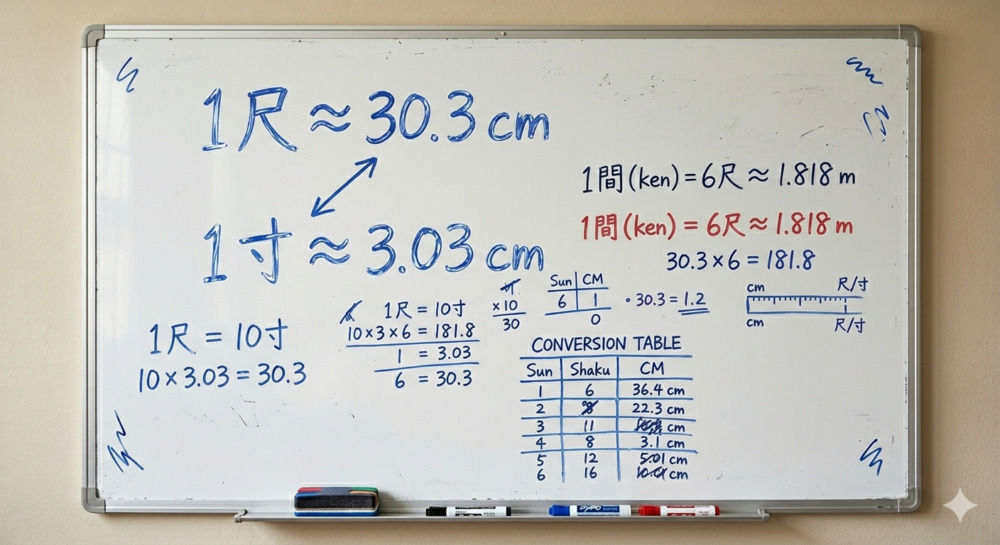 1尺 ≈ 30.3 cm
1寸 ≈ 3.03 cm
1間(ken) = 6尺 ≈ 1.818 m
1間(ken) = 6尺 ≈ 1.818 m
30.3 × 6 = 181.8
1尺 = 10寸
10 × 3.03 = 30.3
1尺 = 10寸
10 × 3 × 6 = 181.8
1 = 3.03
6 = 30.3
×10
30
Sun CM
6 1
0
· 30.3 = 1.2
cm 尺/寸
cm 尺/寸
CONVERSION TABLE
Sun Shaku CM
1 6 36.4 cm
2 22.3 cm
3 11 cm
4 8 3.1 cm
5 12 5.01 cm
6 16 cm